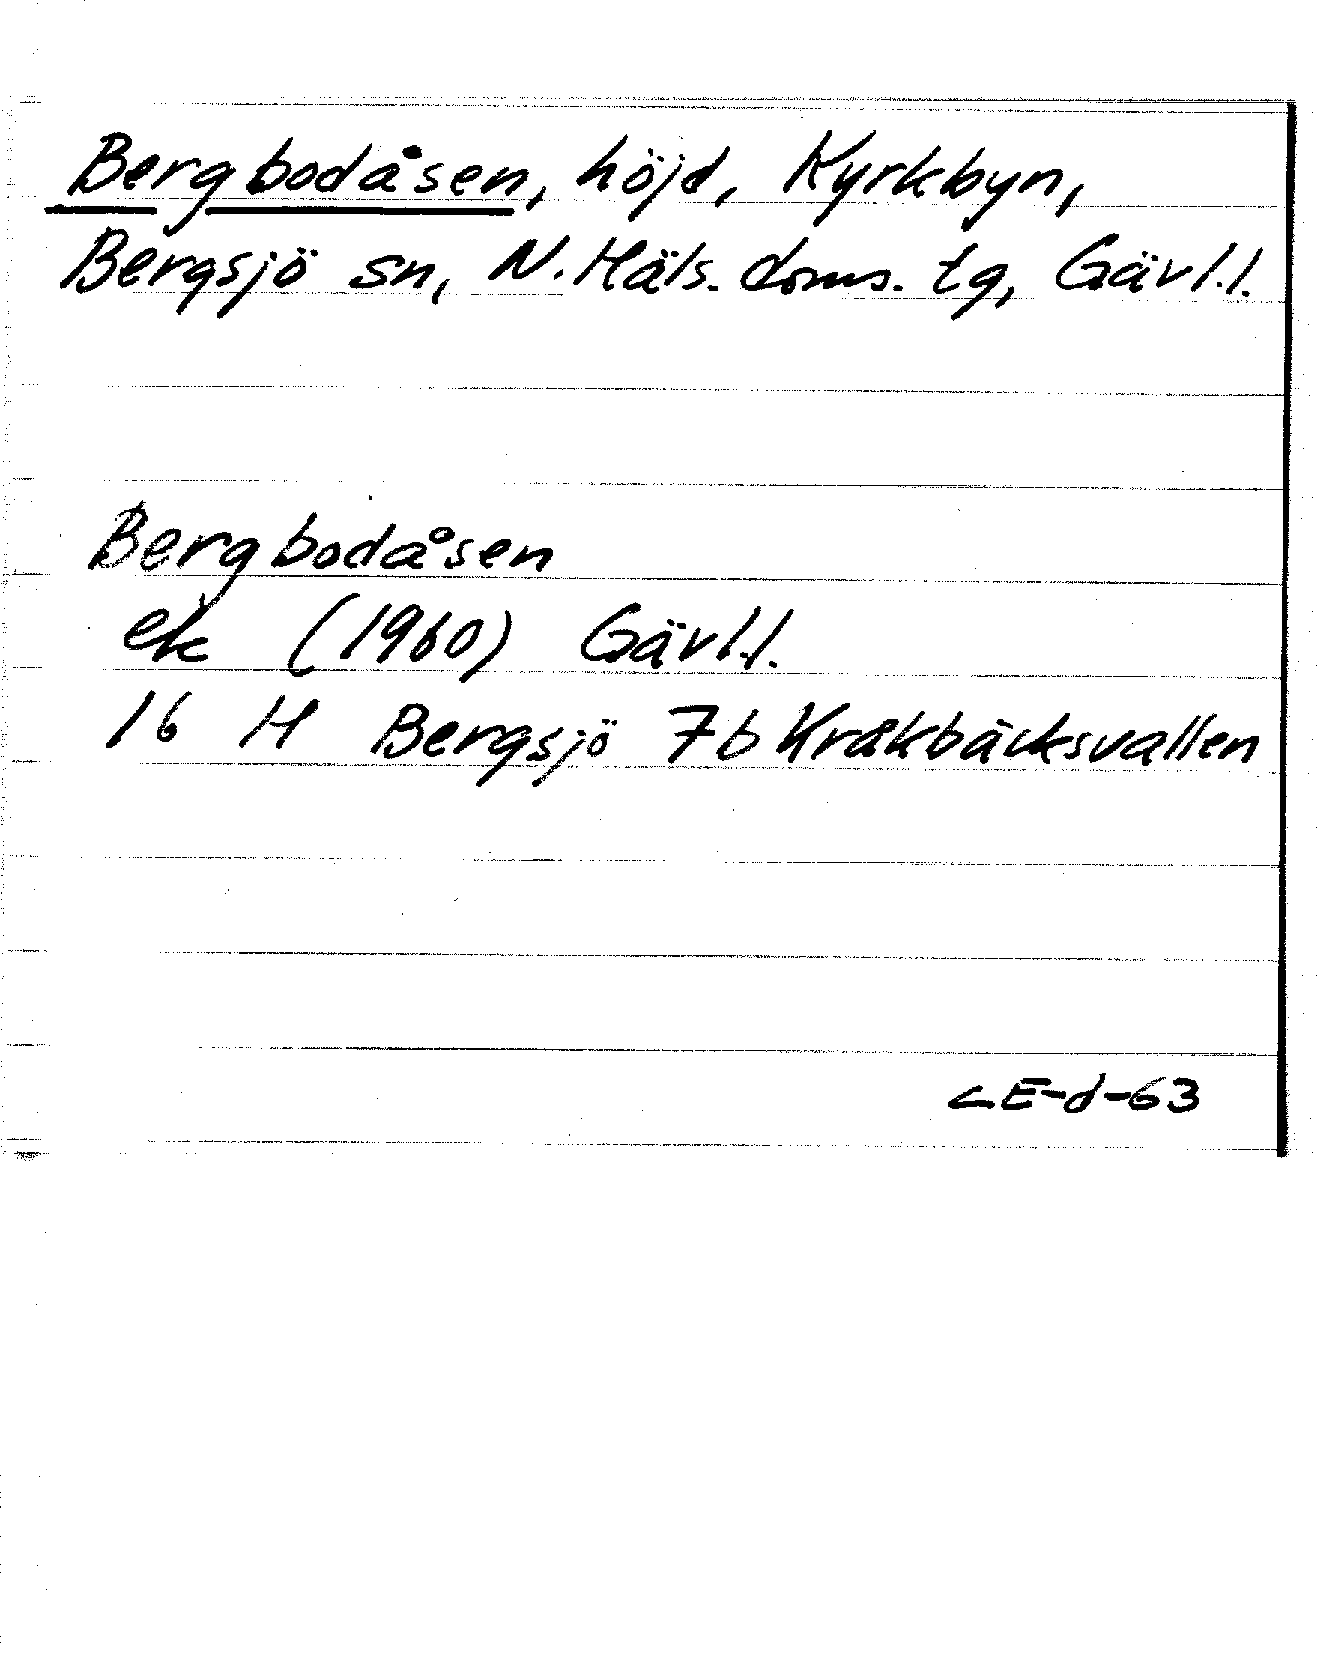 Bergbodåsen, höjd, Kyrkbyn,
Bergsjö sn, N. Häls. doms. tg, Gävl.l.
Bergbodåsen
ek (1960) Gävl.l.
16 H Bergsjö 7b Kråkbäcksvallen
CE-d-63